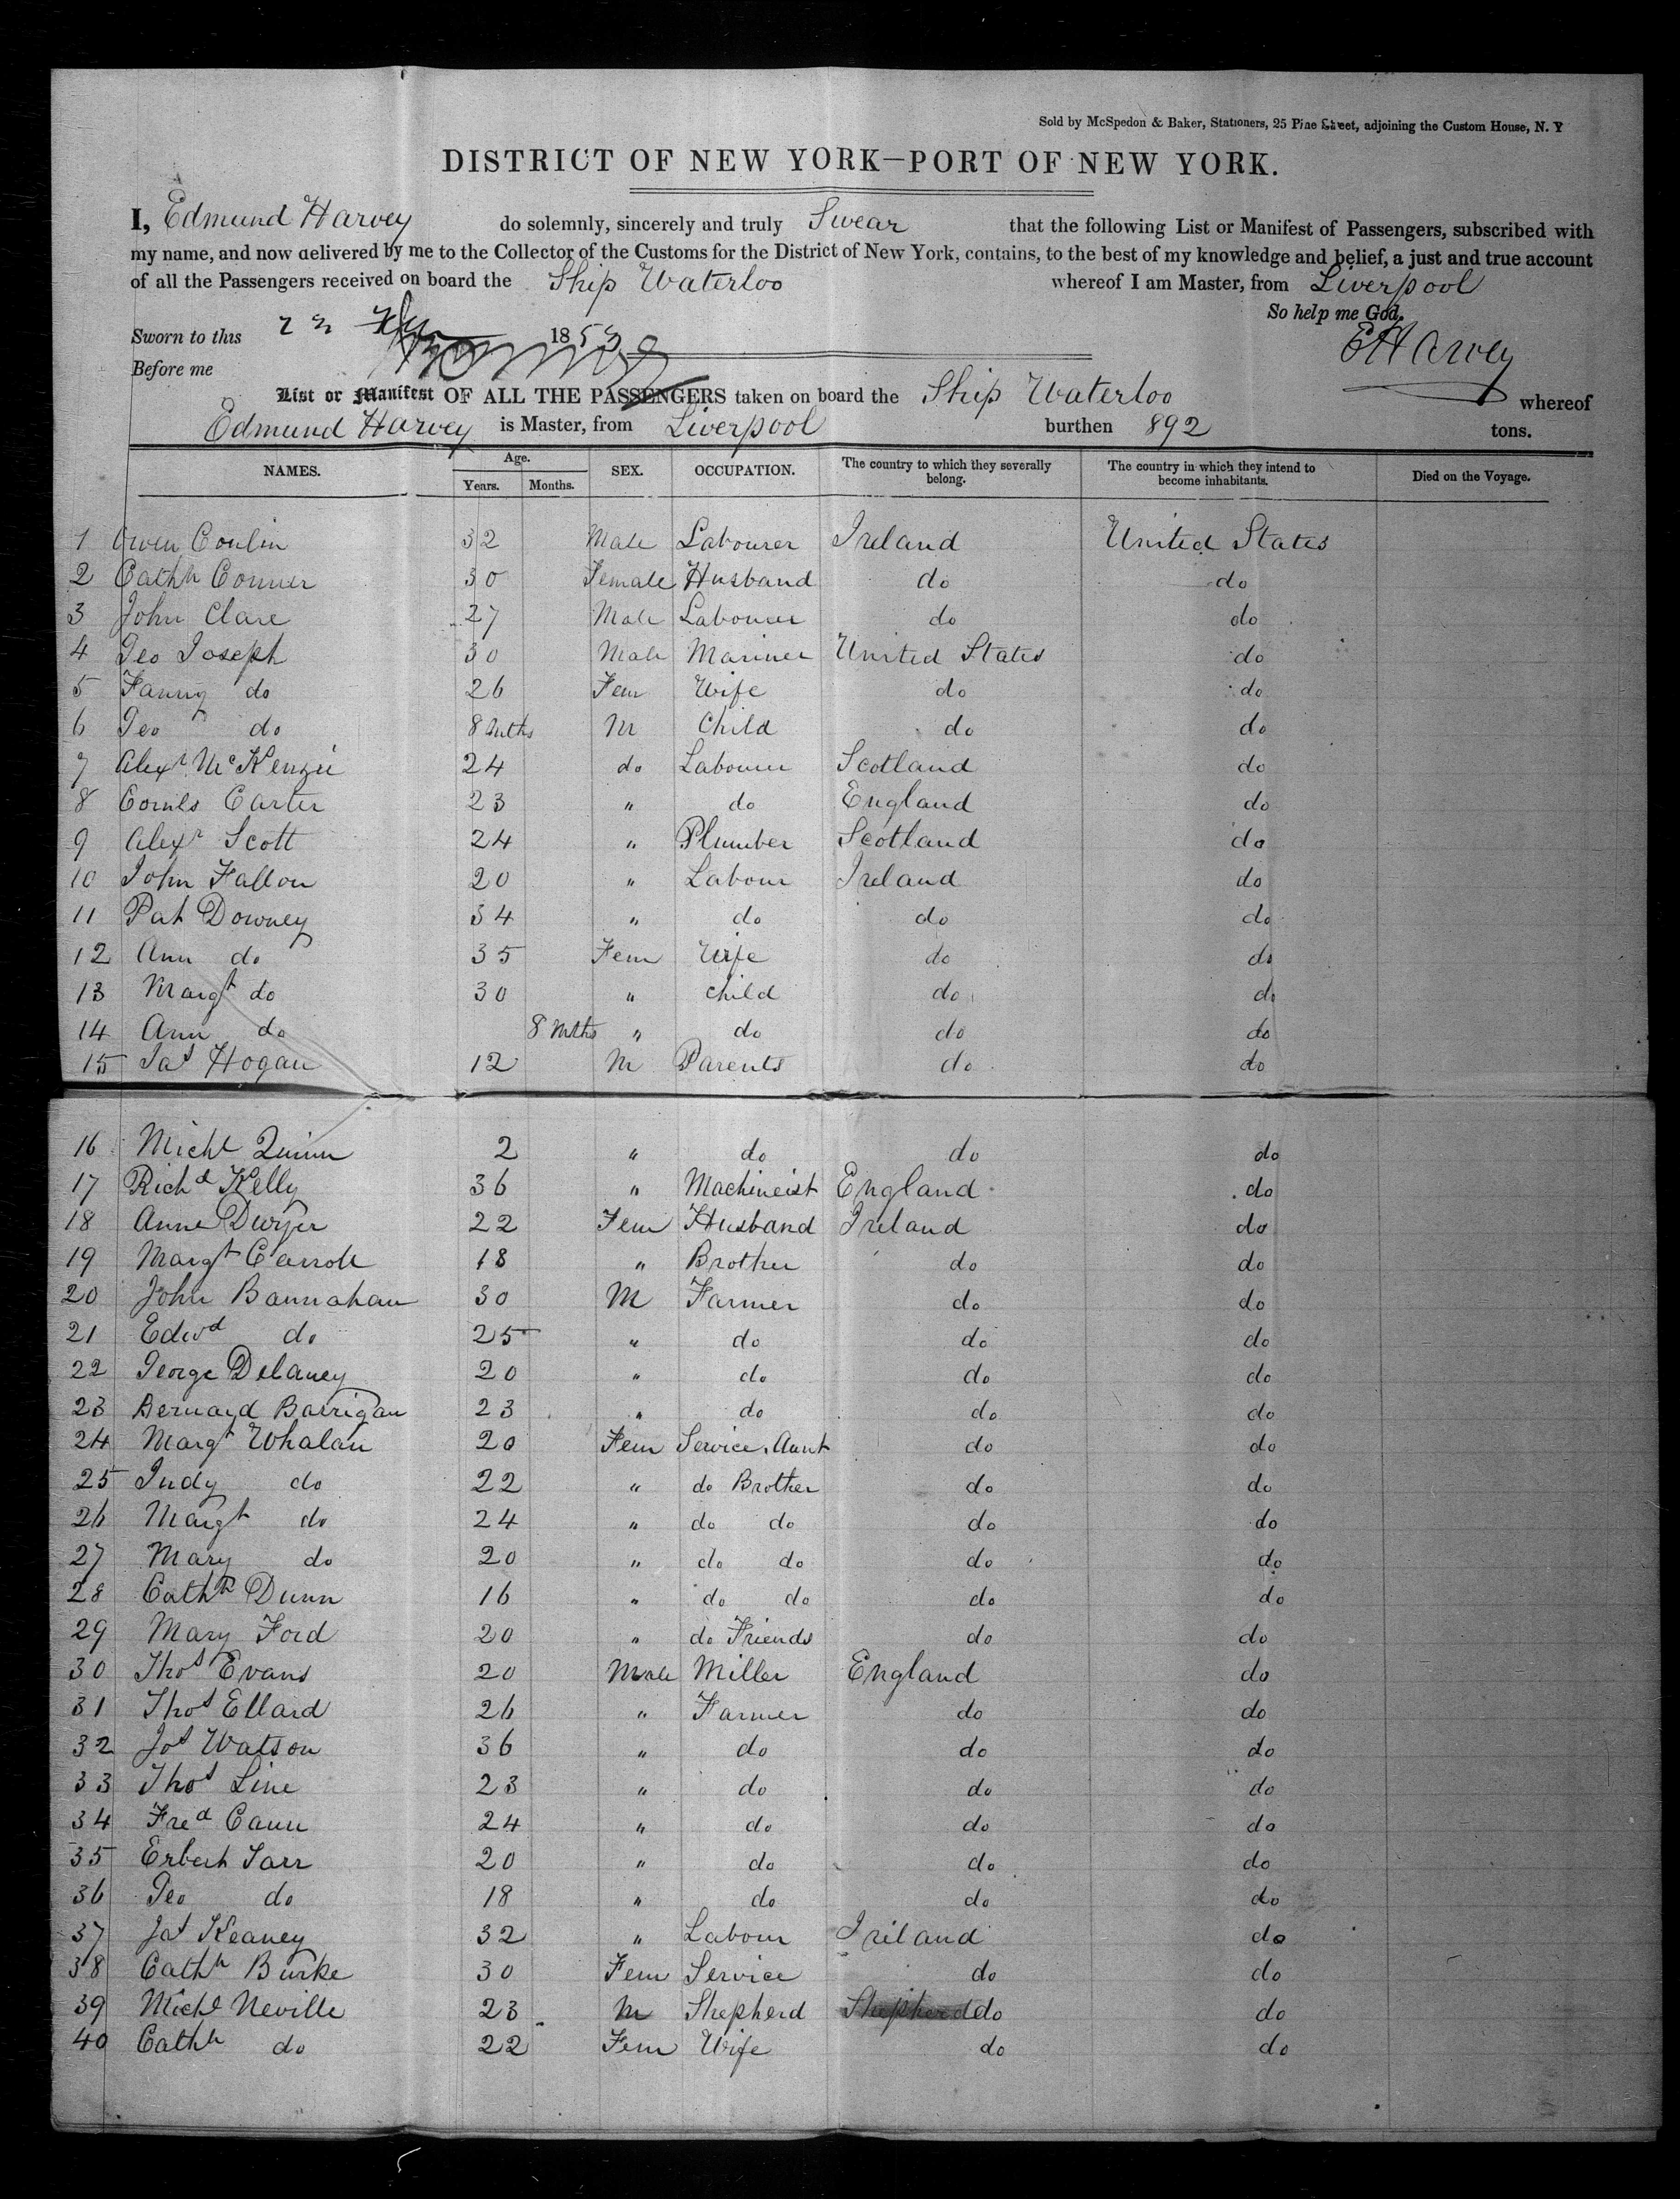 Sold by McSpedon & Baker, Stationers, 25 Pine Street, adjoining the Custom House, N. Y
DISTRICT OF NEW YORK—PORT OF NEW YORK.
I, Edmund Harvey do solemnly, sincerely and truly Swear that the following List or Manifest of Passengers, subscribed with
my name, and now delivered by me to the Collector of the Customs for the District of New York, contains, to the best of my knowledge and belief, a just and true account
of all the Passengers received on board the Ship Waterloo whereof I am Master, from Liverpool
So help me God.
Sworn to this 1853 E Harvey
Before me
List or Manifest OF ALL THE PASSENGERS taken on board the Ship Waterloo whereof
Edmund Harvey is Master, from Liverpool burthen 892 tons.
NAMES. Age. Years. Months. SEX. OCCUPATION. The country to which they severally belong. The country in which they intend to become inhabitants. Died on the Voyage.
1 Owen Conlin 32 Male Labourer Ireland United States
2 Cathn Conner 30 Female Husband do do
3 John Clare 27 Male Labourer do do
4 Geo Joseph 30 Male Mariner United States do
5 Fanny do 26 Fem Wife do do
6 Geo do 8 Mths M Child do do
7 Alexr McKenzie 24 do Labourer Scotland do
8 Carter 23 " do England do
9 Alexr Scott 24 " Plumber Scotland do
10 John Fallon 20 " Labour Ireland do
11 Pat Downey 34 " do do do
12 Ann do 35 Fem Wife do do
13 Margt do 30 " child do do
14 Ann do 8 Mths " do do do
15 Jas Hogan 12 M Parents do do
16 Michl Quinn 2 " do do do
17 Richd Kelly 36 " Machineist England do
18 Anne Dwyer 22 Fem Husband Ireland do
19 Margt Carroll 18 " Brother do do
20 John Bannahan 30 M Farmer do do
21 Edwd do 25 " do do do
22 George Delaney 20 " do do do
23 Bernard Barrigan 23 " do do do
24 Margt Whalan 20 Fem Service, Aunt do do
25 Judy do 22 " do Brother do do
26 Margt do 24 " do do do do
27 Mary do 20 " do do do do
28 Cathn Dunn 16 " do do do do
29 Mary Ford 20 " do Friends do do
30 Thos Evans 20 Male Miller England do
31 Thos Ellard 26 " Farmer do do
32 Jos Watson 36 " do do do
33 Thos Line 23 " do do do
34 Fred Cann 24 " do do do
35 Erbert Sarr 20 " do do do
36 Geo do 18 " do do do
37 Jas Keaney 32 " Labour Ireland do
38 Cathn Burke 30 Fem Service do do
39 Michl Neville 23 M Shepherd Shepherd do do
40 Cathn do 22 Fem Wife do do